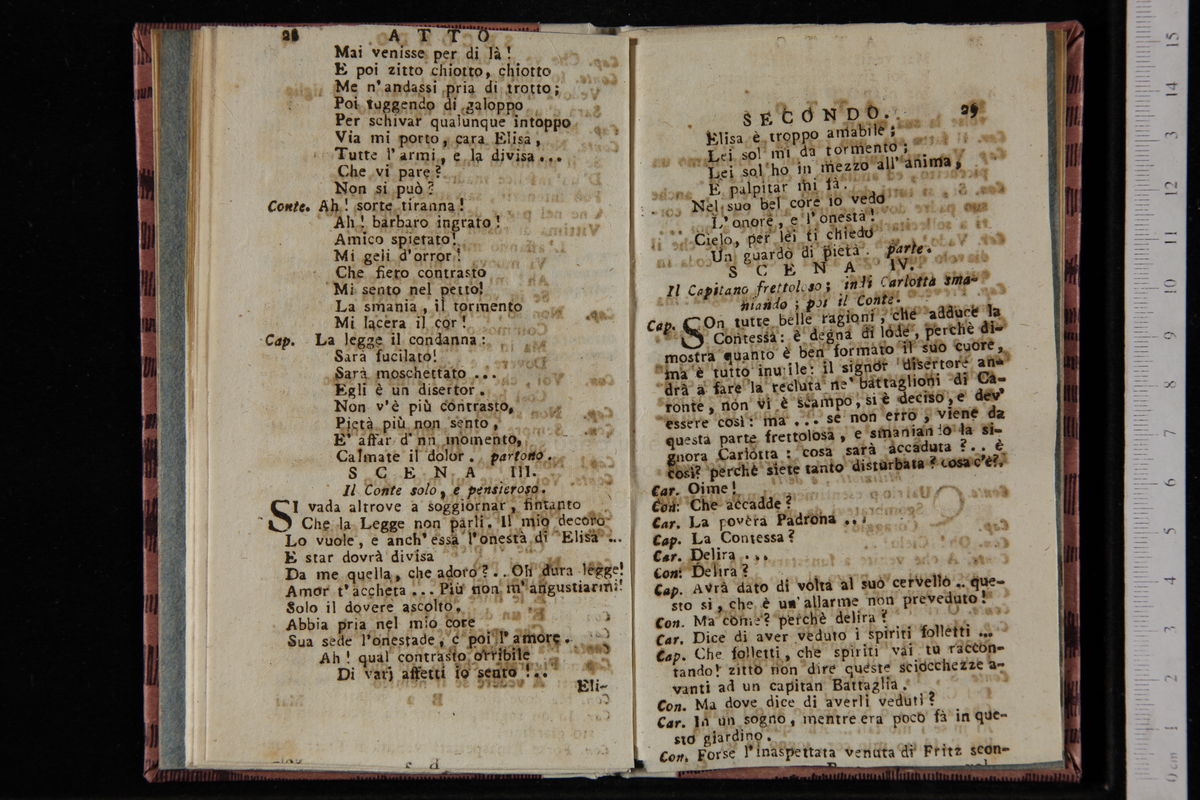 28 ATTO
Mai venisse per di là!
E poi zitto chiotto, chiotto
Me n'andassi pria di trotto;
Poi fuggendo di galoppo
Per schivar qualunque intoppo
Via mi porto, cara Elisa,
Tutte l'armi, e la divisa...
Che vi pare?
Non si può?
Conte. Ah! sorte tiranna!
Ah! barbaro ingrato!
Amico spietato!
Mi geli d'orror!
Che fiero contrasto
Mi sento nel petto!
La smania, il tormento
Mi lacera il cor!
Cap. La legge il condanna:
Sarà fucilato!
Sarà moschettato ...
Egli è un disertor.
Non v'è più contrasto,
Pietà più non sento,
E' affar d'nn momento,
Calmate il dolor. partono.
SCENA III.
Il Conte solo, e pensieroso.
SI vada altrove a soggiornar, fintanto
Che la Legge non parli. Il mio decoro
Lo vuole, e anch'essa l'onestà di Elisa ...
E star dovrà divisa
Da me quella, che adoro?.. Oh dura legge!
Amor t'accheta ... Più non m'angustiarmi!
Solo il dovere ascolto,
Abbia pria nel mio core
Sua sede l'onestade, e poi l'amore.
Ah! qual contrasto orribile
Di varj affetti io sento!..
Eli-
SECONDO. 29
Elisa è troppo amabile;
Lei sol mi da tormento;
Lei sol ho in mezzo all'anima,
E palpitar mi fà.
Nel suo bel core io vedo
L'onore, e l'onestà!
Cielo, per lei ti chiedo
Un guardo di pietà. parte.
SCENA IV.
Il Capitano frettoloso; indi Carlotta sma-
niando; poi il Conte.
Cap. SOn tutte belle ragioni, che adduce la
Contessa: è degna di lode, perchè di-
mostra quanto è ben formato il suo cuore,
ma è tutto inutile: il signor disertore an-
drà a fare la recluta ne' battaglioni di Ca-
ronte, non vi è scampo, si è deciso, e dev'
essere così: ma ... se non erro, viene da
questa parte frettolosa, e smaniando la si-
gnora Carlotta: cosa sarà accaduta?.. è
così? perchè siete tanto disturbata? cosa c'è?.
Car. Oime!
Con: Che accadde?
Car. La povera Padrona ...
Cap. La Contessa?
Car. Delira ...
Con: Delira?
Cap. Avrà dato di volta al suo cervello .. que-
sto si, che è un'allarme non preveduto!
Con. Ma come? perchè delira?
Car. Dice di aver veduto i spiriti folletti ...
Cap. Che folletti, che spiriti vai tu raccon-
tando! zitto non dire queste sciocchezze a-
vanti ad un capitan Battaglia.
Con. Ma dove dice di averli veduti?
Car. In un sogno, mentre era poco fà in que-
sto giardino.
Con. Forse l'inaspettata venuta di Fritz scon-